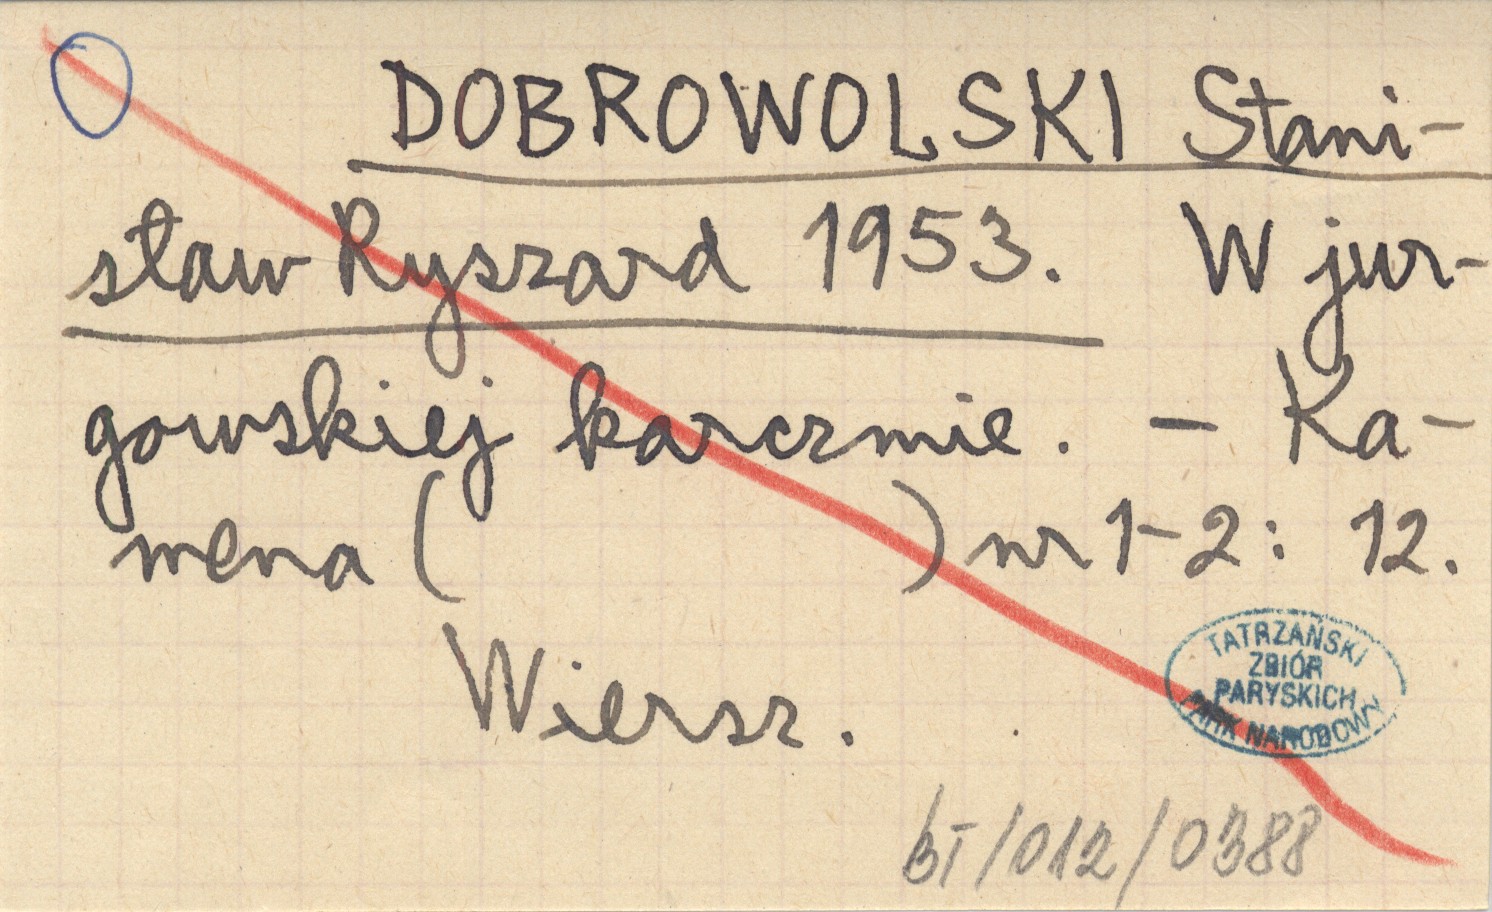 DOBROWOLSKI Stani-
sław Ryszard 1953. W jur-
gowskiej karczmie. – Ka-
mena ( ) nr 1-2: 12.
Wiersz.
TATRZAŃSKI
ZBIÓR
PARYSKICH
PARK NARODOWY
bT/012/0388